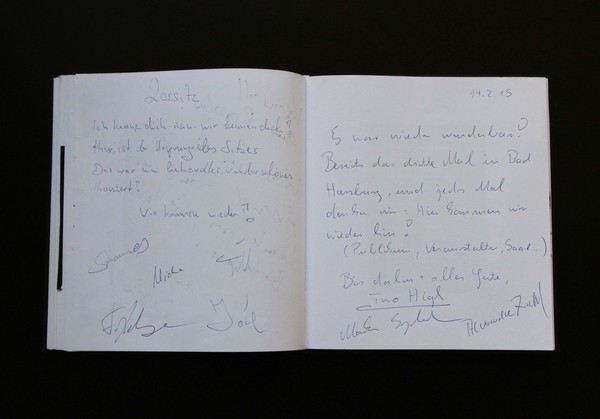 Zarsitz
Ich kenne dich nun wir kennen dich
Hier ist der Ursprung des Sitzes
Das war ein liebevolles, wunderschönes
Konzert!
Wir kommen wieder!!
Micha
Till
Joél
14.2.15
Es war wieder wunderbar!
Bereits das dritte Mal in Bad
Harzburg, und jedes Mal
denken wir: Hier kommen wir
wieder hin!
(Publikum, Veranstalter, Saal...)
Bis dahin alles Gute,
Tino Higl
Martin
Alexandre